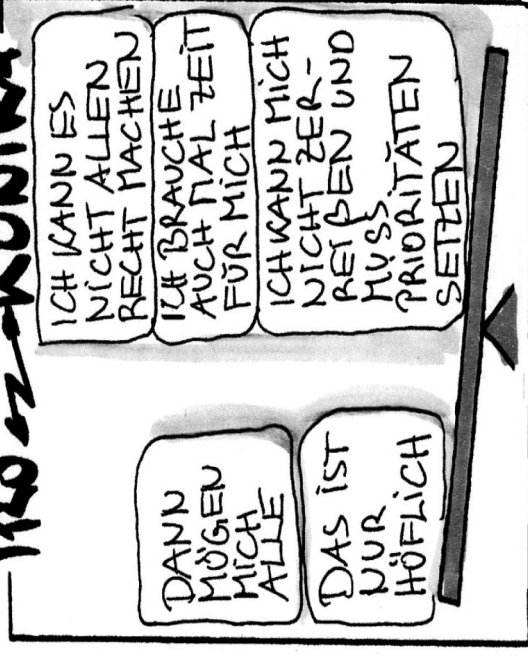 PRO ↯ KONTRA
DANN
MÖGEN
MICH
ALLE
DAS IST
NUR
HÖFLICH
ICH KANN ES
NICHT ALLEN
RECHT MACHEN
ICH BRAUCHE
AUCH MAL ZEIT
FÜR MICH
ICH KANN MICH
NICHT ZER-
REIßEN UND
MUSS
PRIORITÄTEN
SETZEN